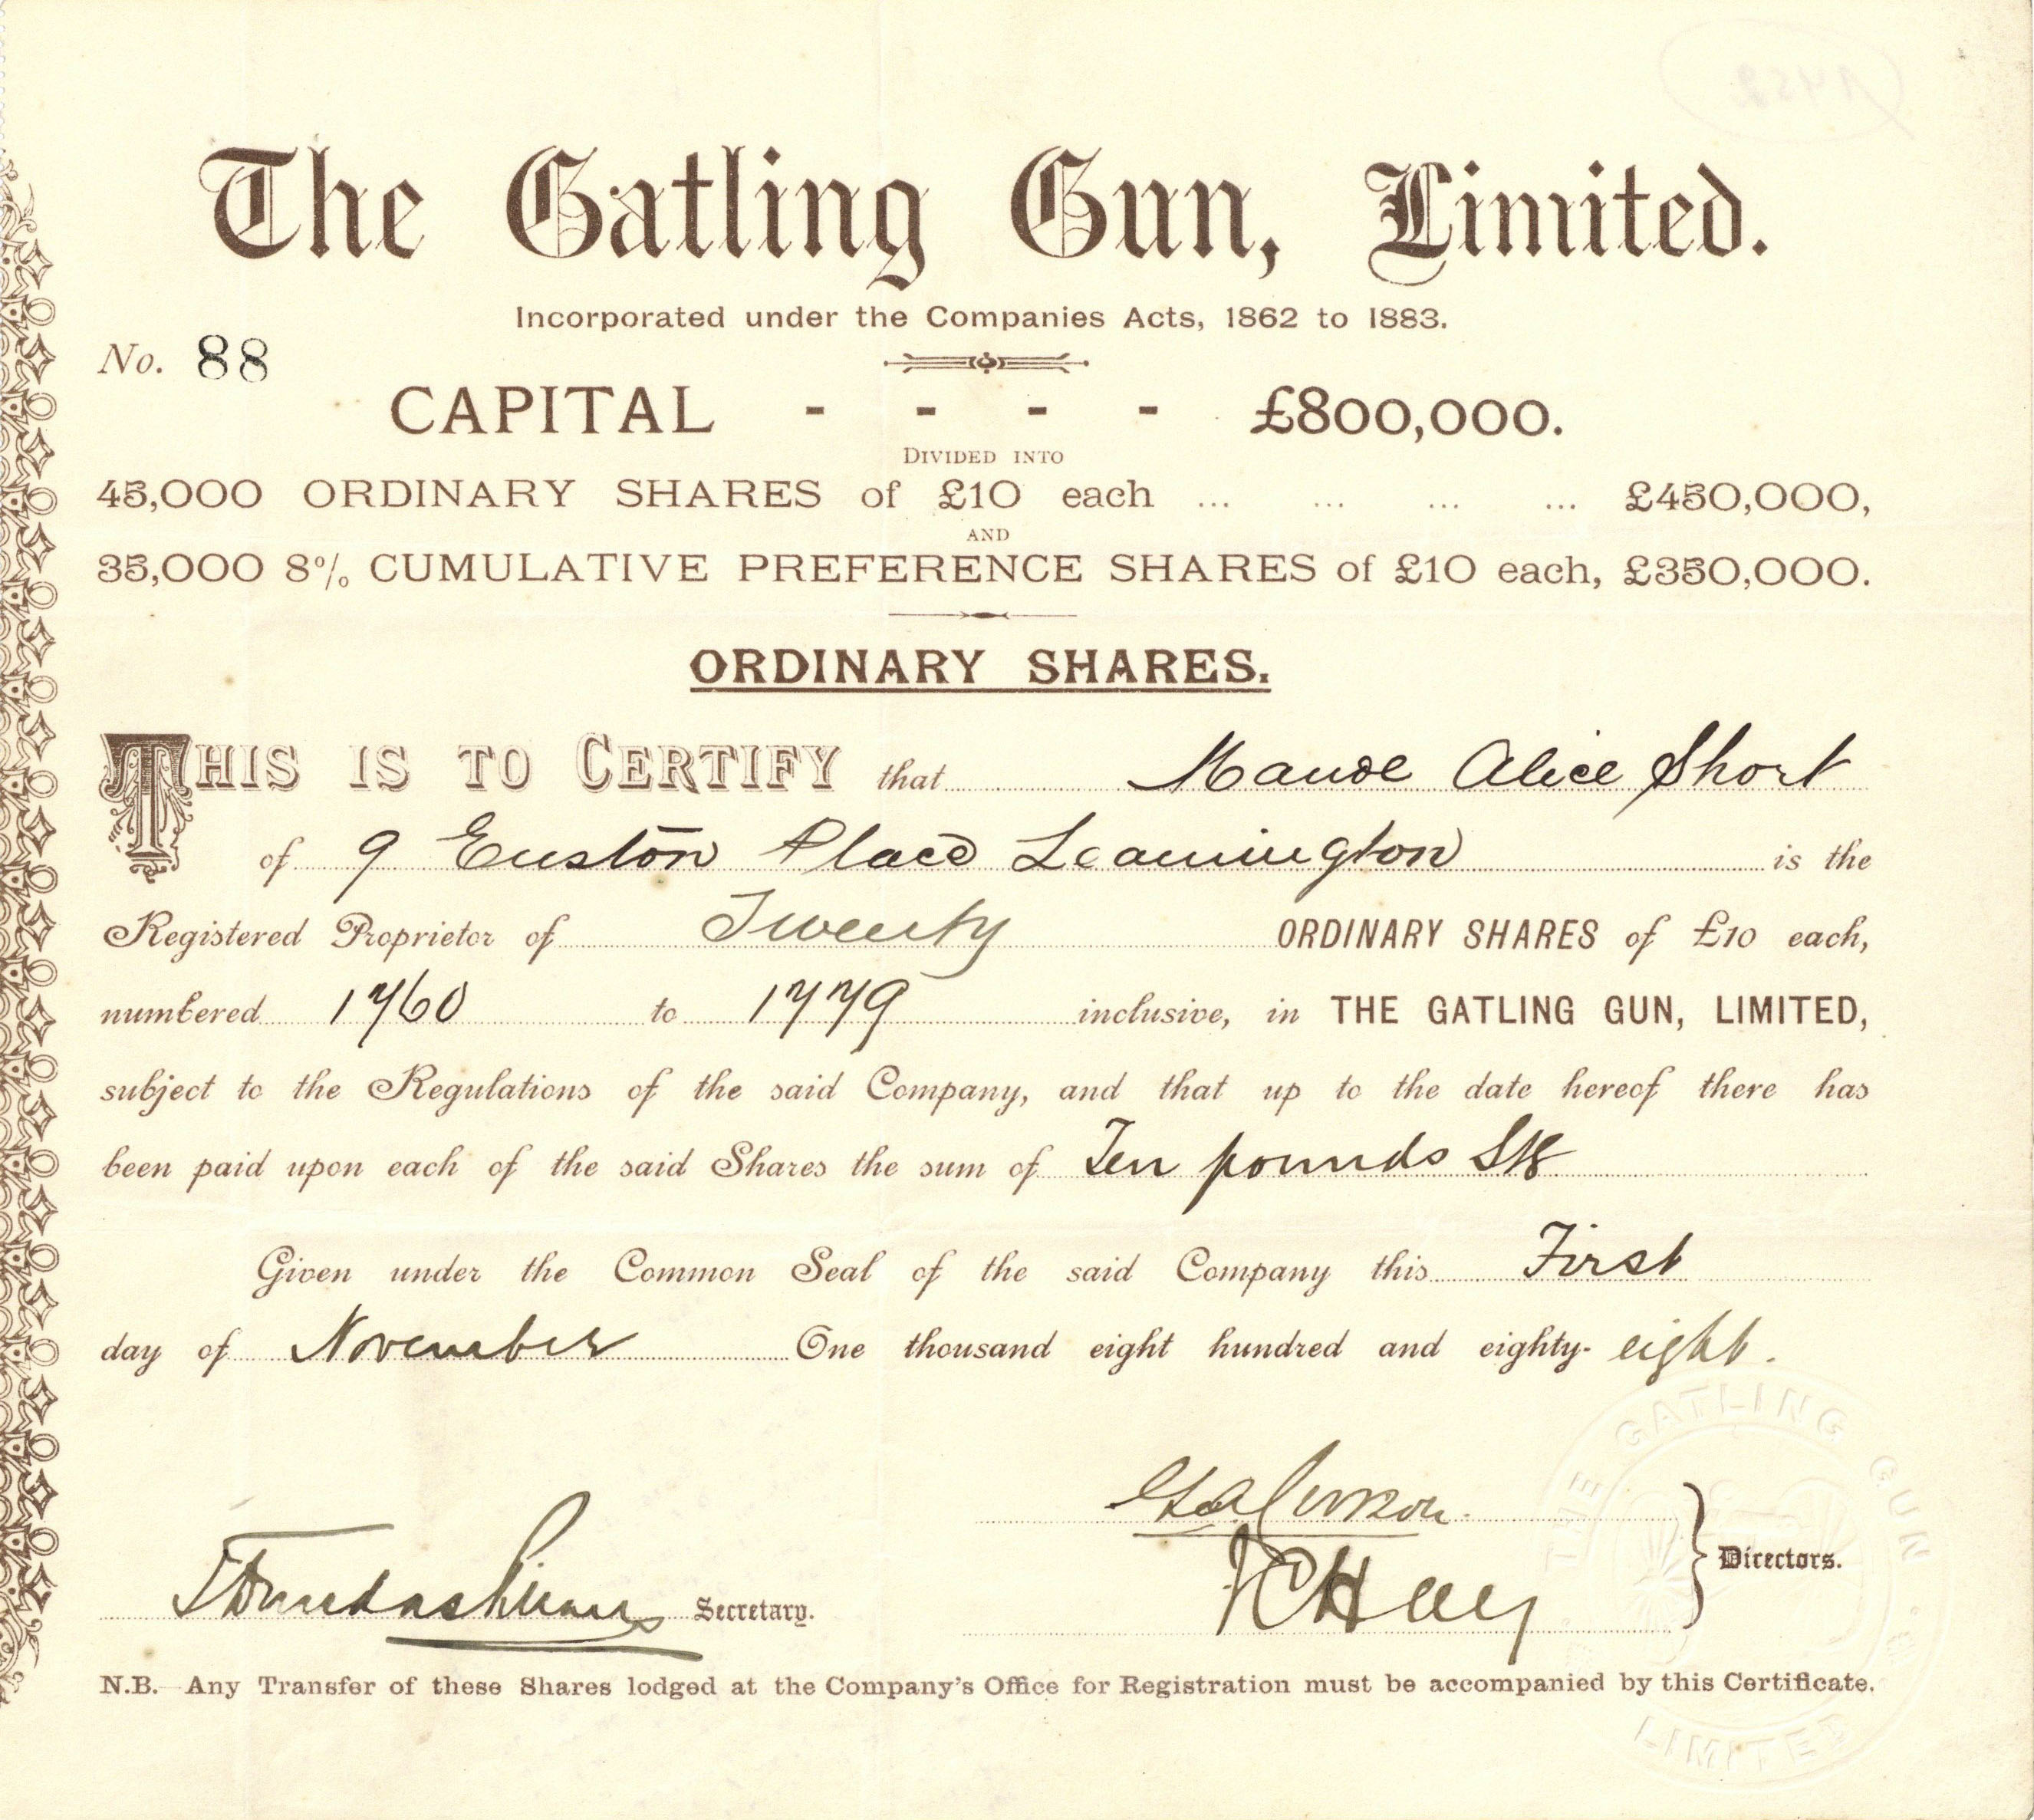 The Gatling Gun, Limited.
Incorporated under the Companies Acts, 1862 to 1883.
No. 88
CAPITAL - - - - £800,000.
DIVIDED INTO
45,000 ORDINARY SHARES of £10 each ... ... ... ... £450,000,
AND
35,000 8% CUMULATIVE PREFERENCE SHARES of £10 each, £350,000.
ORDINARY SHARES.
THIS IS TO CERTIFY that Maude Alice Short
of 9 Euston Place Leamington is the
Registered Proprietor of Twenty ORDINARY SHARES of £10 each,
numbered 1760 to 1779 inclusive, in THE GATLING GUN, LIMITED,
subject to the Regulations of the said Company, and that up to the date hereof there has
been paid upon each of the said Shares the sum of Ten pounds Stg
Given under the Common Seal of the said Company this First
day of November One thousand eight hundred and eighty-eight.
Secretary.
Directors.
THE GATLING GUN
LIMITED
N.B. Any Transfer of these Shares lodged at the Company's Office for Registration must be accompanied by this Certificate.